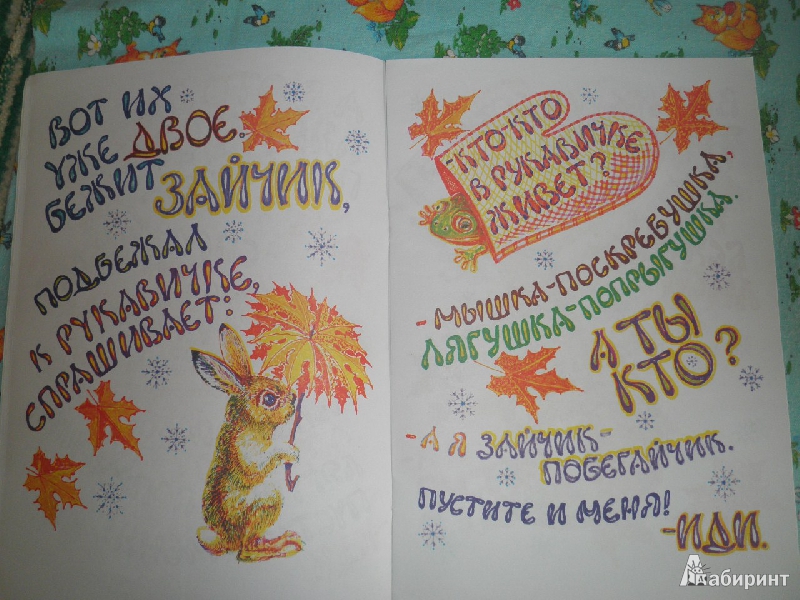 ВОТ ИХ
УЖЕ ДВОЕ.
БЕЖИТ ЗАЙЧИК,
ПОДБЕЖАЛ
К РУКАВИЧКЕ,
СПРАШИВАЕТ:
-КТО-КТО
В РУКАВИЧКЕ
ЖИВЕТ?
-МЫШКА-ПОСКРЕБУШКА,
ЛЯГУШКА-ПОПРЫГУШКА.
А ТЫ
КТО?
-А Я ЗАЙЧИК-
ПОБЕГАЙЧИК.
ПУСТИТЕ И МЕНЯ!
-ИДИ.
Лабиринт